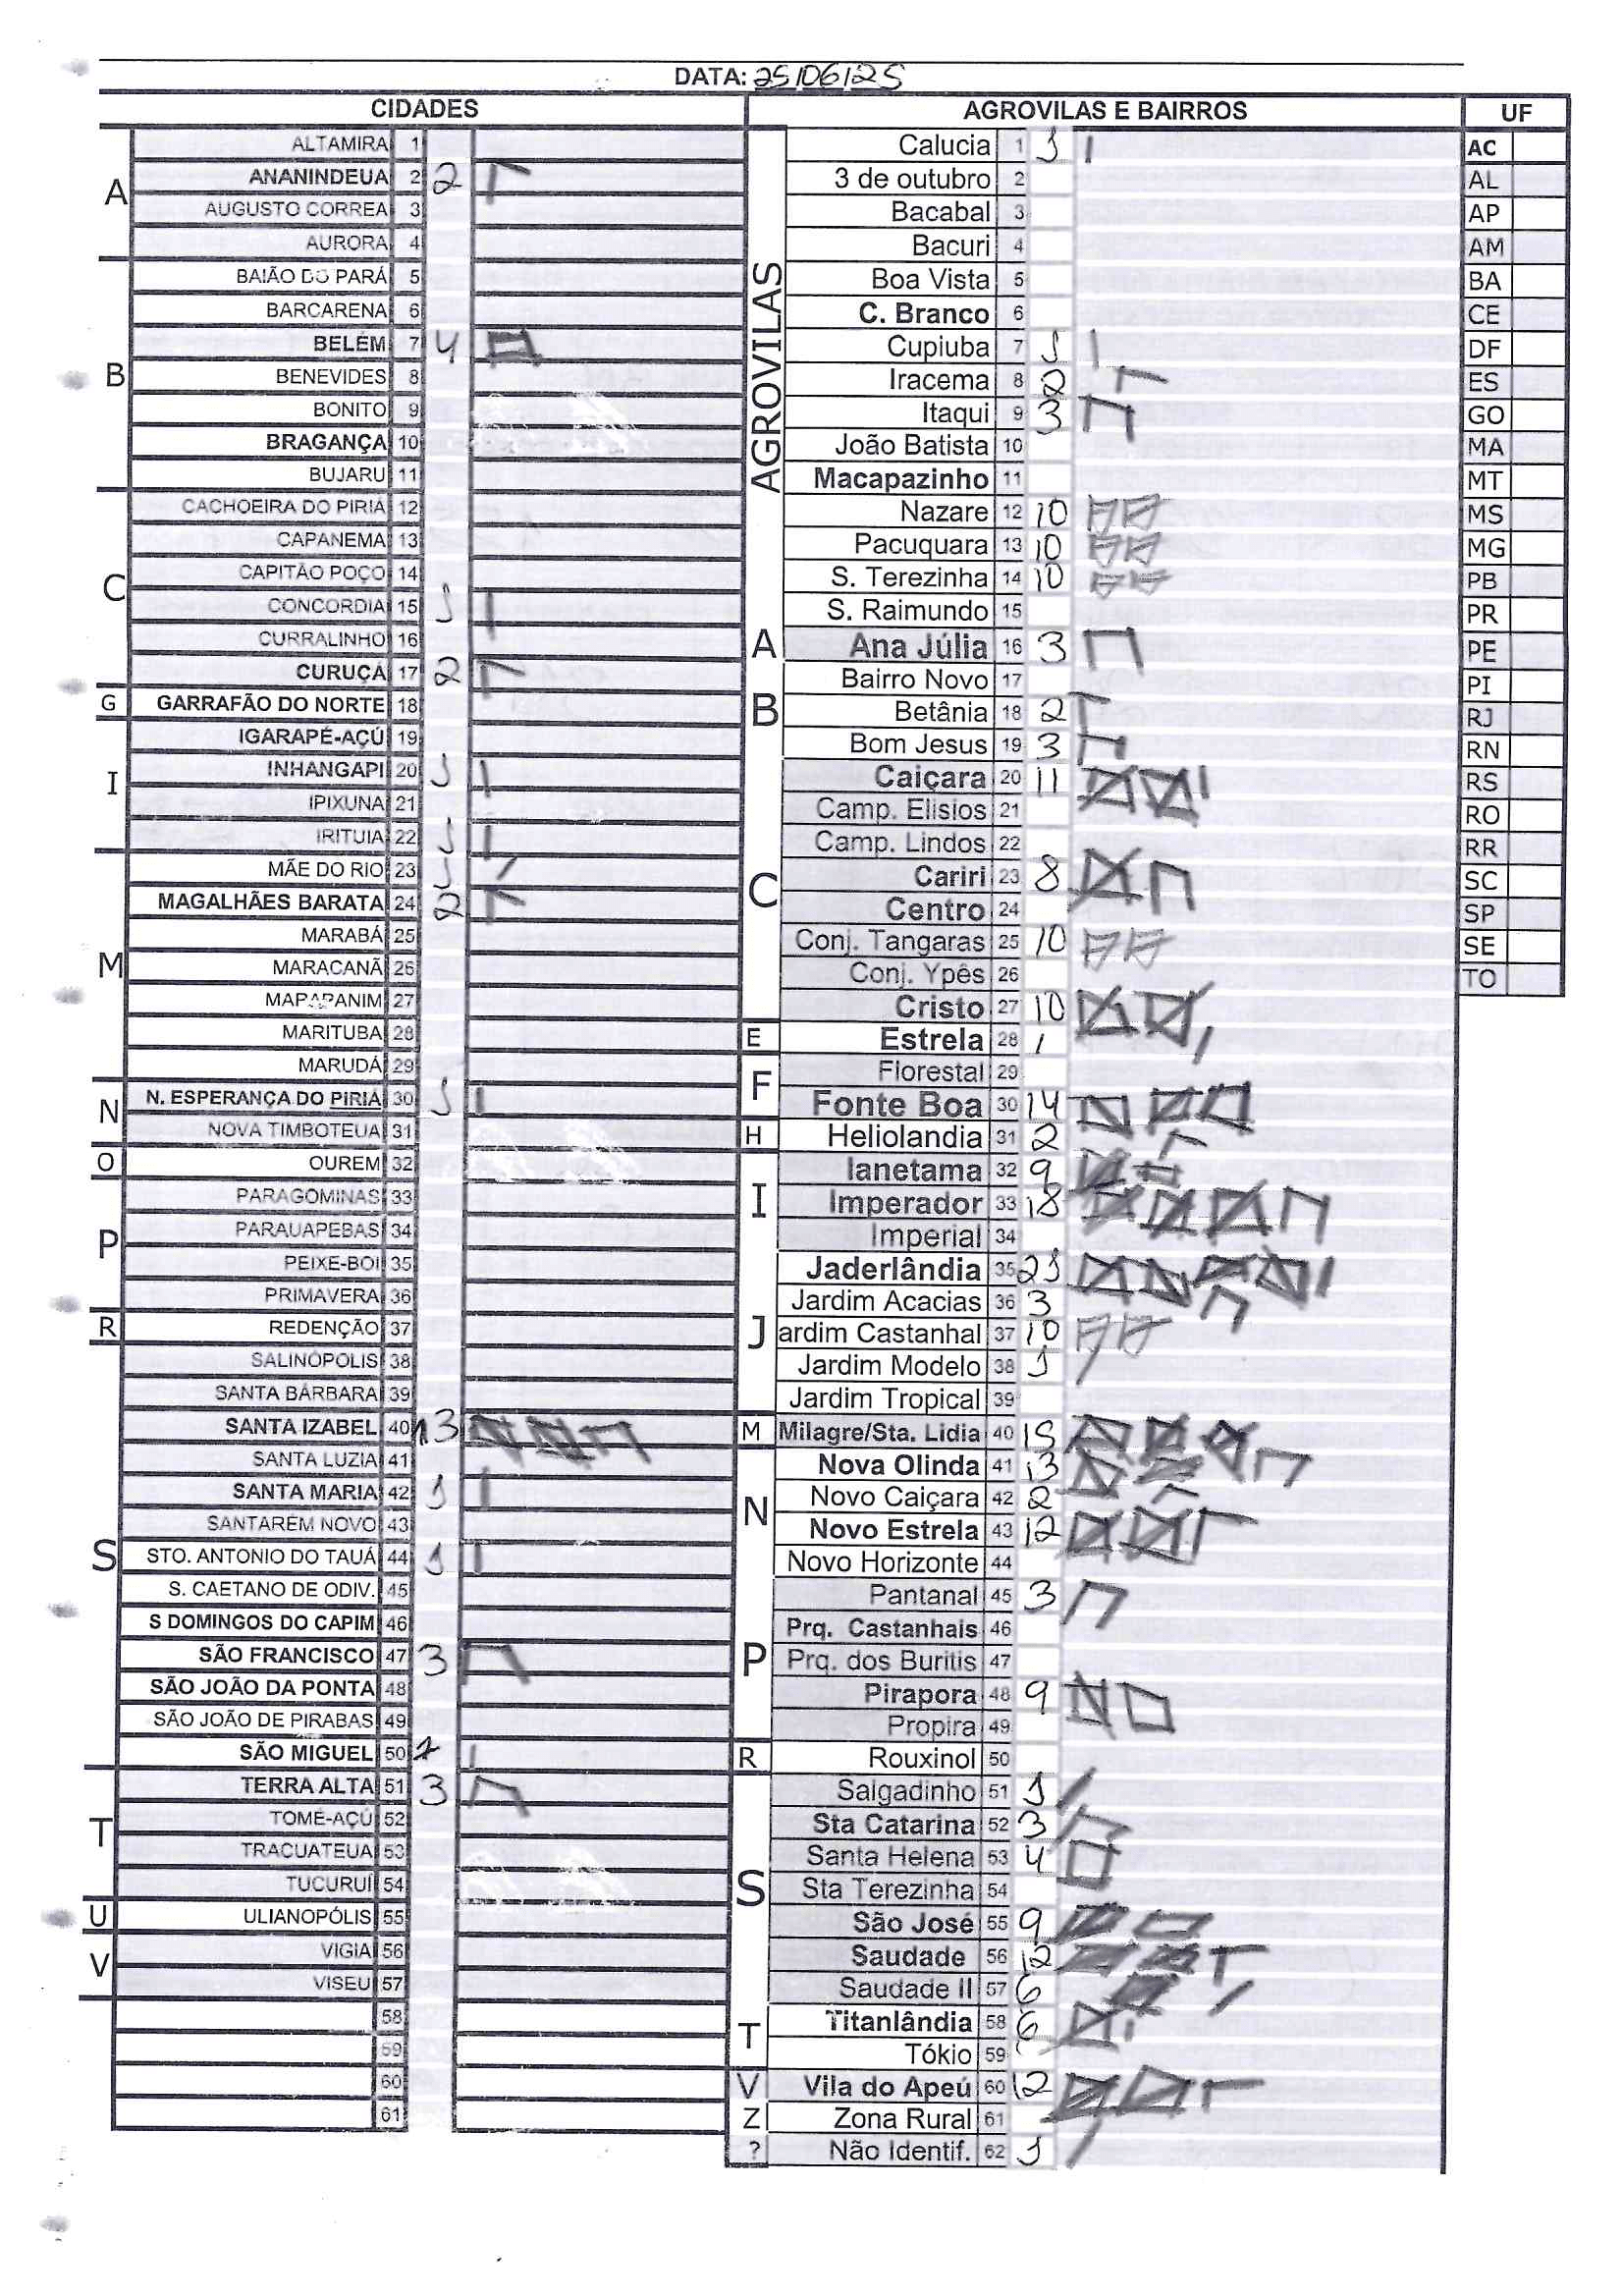 DATA: 25/06/25
CIDADES
A
ALTAMIRA 1
ANANINDEUA 2 2
AUGUSTO CORREA 3
AURORA 4
B
BAIÃO DO PARÁ 5
BARCARENA 6
BELÉM 7 4
BENEVIDES 8
BONITO 9
BRAGANÇA 10
BUJARU 11
C
CACHOEIRA DO PIRIÁ 12
CAPANEMA 13
CAPITÃO POÇO 14
CONCORDIA 15 1
CURRALINHO 16
CURUÇA 17 2
G
GARRAFÃO DO NORTE 18
I
IGARAPÉ-AÇÚ 19
INHANGAPI 20 1
IPIXUNA 21
IRITUIA 22 1
M
MÃE DO RIO 23 1
MAGALHÃES BARATA 24 2
MARABÁ 25
MARACANÃ 26
MAPAPANIM 27
MARITUBA 28
MARUDÁ 29
N
N. ESPERANÇA DO PIRIÁ 30 1
NOVA TIMBOTEUA 31
O
OUREM 32
P
PARAGOMINAS 33
PARAUAPEBAS 34
PEIXE-BOI 35
PRIMAVERA 36
R
REDENÇÃO 37
S
SALINÓPOLIS 38
SANTA BÁRBARA 39
SANTA IZABEL 40 13
SANTA LUZIA 41
SANTA MARIA 42 1
SANTARÉM NOVO 43
STO. ANTONIO DO TAUÁ 44 1
S. CAETANO DE ODIV. 45
S DOMINGOS DO CAPIM 46
SÃO FRANCISCO 47 3
SÃO JOÃO DA PONTA 48
SÃO JOÃO DE PIRABAS 49
SÃO MIGUEL 50 1
T
TERRA ALTA 51 3
TOMÉ-AÇÚ 52
TRACUATEUA 53
TUCURUÍ 54
U
ULIANOPÓLIS 55
V
VIGIA 56
VISEU 57
58
59
60
61
AGROVILAS E BAIRROS
AGROVILAS
Calucia 1 1
3 de outubro 2
Bacabal 3
Bacuri 4
Boa Vista 5
C. Branco 6
Cupiuba 7 1
Iracema 8 2
Itaqui 9 3
João Batista 10
Macapazinho 11
Nazare 12 10
Pacuquara 13 10
S. Terezinha 14 10
S. Raimundo 15
A
Ana Júlia 16 3
B
Bairro Novo 17
Betânia 18 2
Bom Jesus 19 3
C
Caiçara 20 11
Camp. Elisios 21
Camp. Lindos 22
Cariri 23 8
Centro 24
Conj. Tangaras 25 10
Conj. Ypês 26
Cristo 27 10
E
Estrela 28 1
F
Florestal 29
Fonte Boa 30 14
H
Heliolandia 31 2
I
Ianetama 32 9
Imperador 33 18
Imperial 34
J
Jaderlândia 35 21
Jardim Acacias 36 3
ardim Castanhal 37 10
Jardim Modelo 38 1
Jardim Tropical 39
M
Milagre/Sta. Lidia 40 15
N
Nova Olinda 41 13
Novo Caiçara 42 2
Novo Estrela 43 12
Novo Horizonte 44
P
Pantanal 45 3
Prq. Castanhais 46
Prq. dos Buritis 47
Pirapora 48 9
Propira 49
R
Rouxinol 50
S
Salgadinho 51 1
Sta Catarina 52 3
Santa Helena 53 4
Sta Terezinha 54
São José 55 9
Saudade 56 12
Saudade II 57 6
T
Titanlândia 58 6
Tókio 59
V
Vila do Apeú 60 12
Z
Zona Rural 61
?
Não Identif. 62 1
UF
AC
AL
AP
AM
BA
CE
DF
ES
GO
MA
MT
MS
MG
PB
PR
PE
PI
RJ
RN
RS
RO
RR
SC
SP
SE
TO